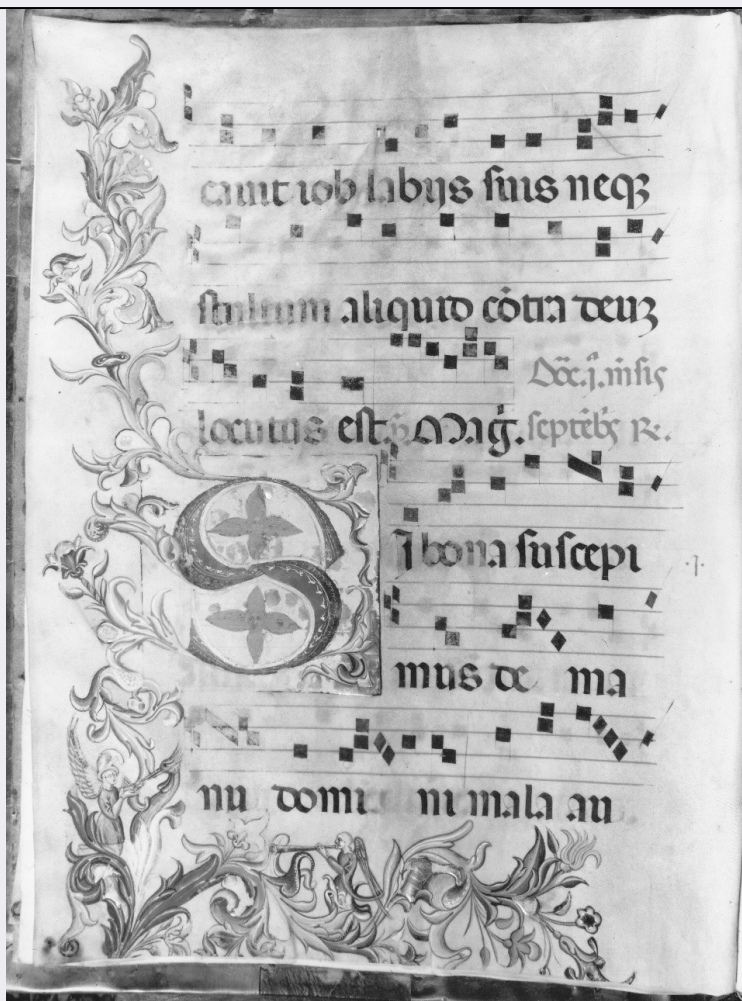 cauit iob labijs suis neqꝫ
stultum aliquid cōtra deuꝫ
Dōc.j. mēsis
locutus est. Mag̃. septēbꝫ R.
SI bona suscepi
.j.
mus de ma
nu domi ni mala au